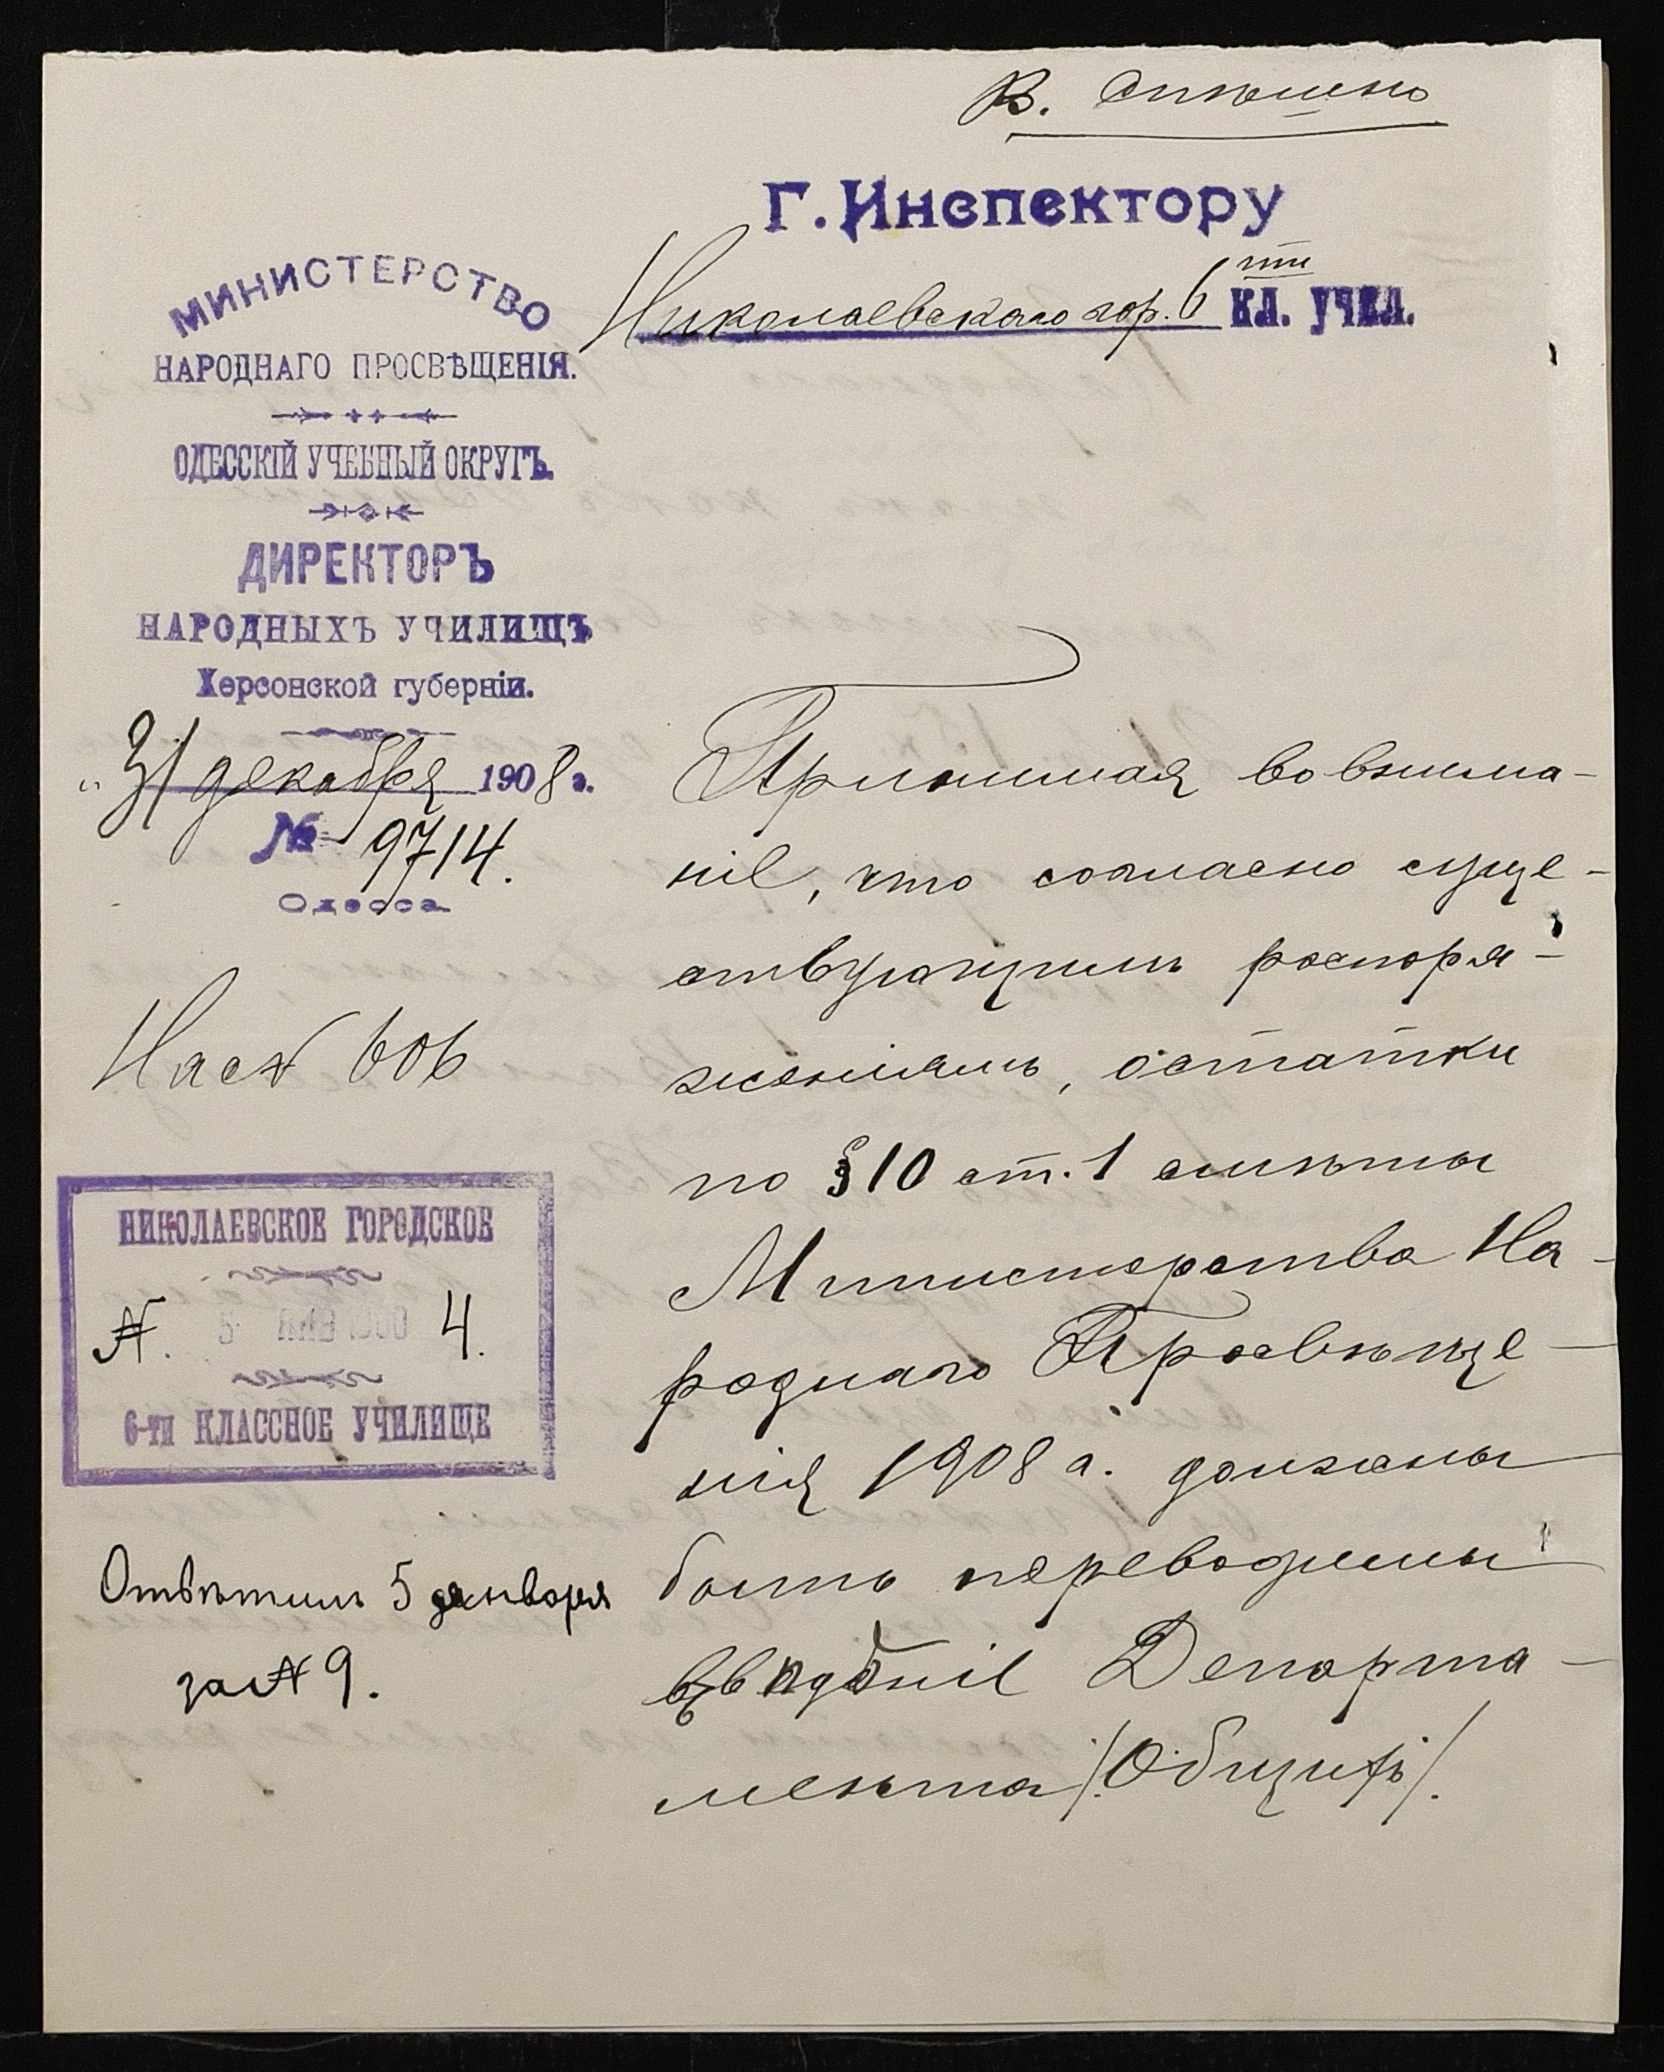 В. Спѣшно
Г. Инспектору
Николаевскаго гор. 6 ти кл. учил.
МИНИСТЕРСТВО
НАРОДНАГО ПРОСВѢЩЕНІЯ.
ОДЕССКІЙ УЧЕБНЫЙ ОКРУГЪ.
ДИРЕКТОРЪ
НАРОДНЫХЪ УЧИЛИЩЪ
Херсонской губерніи.
"31 декабря 1908 г.
№ 9714.
Одесса
НИКОЛАЕВСКОЕ ГОРОДСКОЕ
№. 4.
6-ти КЛАССНОЕ УЧИЛИЩЕ
Отвѣтилъ 5 января
за № 9.
Принимая во внима-
ніе, что согласно суще-
ствующимъ распоря-
женіямъ, остатки
по § 10 ст. 1 смѣты
Министерства На-
роднаго Просвѣще-
нія 1908 г. должны
быть переводимы
Департа-
мента /Общій/.